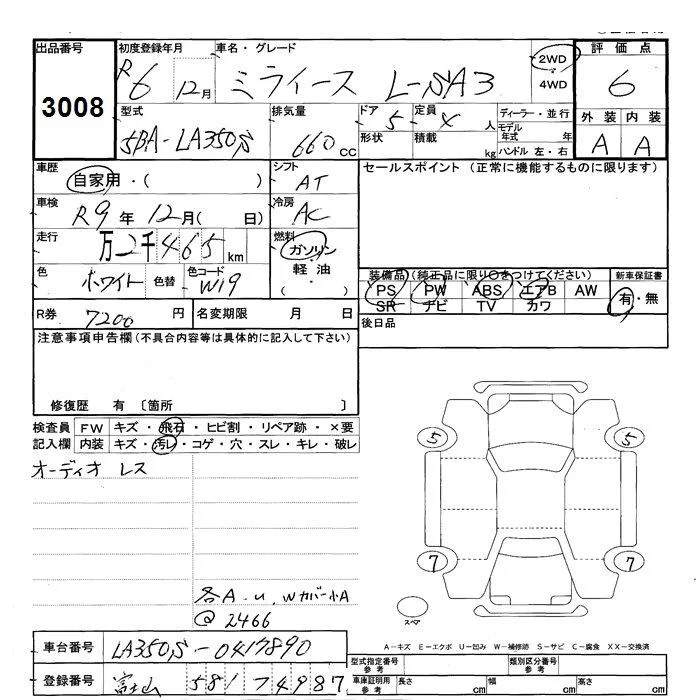 出品番号 初度登録年月 車名・グレード 2WD 評価点
3008 R6 12月 ミライース L-SA3 4WD 6
型式 排気量 ドア 定員 ディーラー・並行 外装 内装
5BA-LA350S 660cc 5 4人 モデル年式 年 A A
形状 積載 kg ハンドル 左・右
車歴 自家用・( ) シフト AT セールスポイント (正常に機能するものに限ります)
車検 R9年12月( 日) 冷房 AC
走行 万2千465km 燃料 ガソリン・軽油・( )
色 ホワイト 色替 色コード W19
装備品(純正品に限り○をつけてください) 新車保証書
PS PW ABS エアB AW 有・無
SR ナビ TV カワ
R券 7200円 名変期限 月 日 後日品
注意事項申告欄(不具合内容等は具体的に記入して下さい)
修復歴 有〔箇所 〕
検査員 FW キズ・飛石・ヒビ割・リペア跡・×要
記入欄 内装 キズ・汚レ・コゲ・穴・スレ・キレ・破レ
オーディオレス
5 5
7 7
各A.U.Wカバー小A
@2466
スペア
A-キズ E-エクボ U-凹み W-補修跡 S-サビ C-腐食 XX-交換済
車台番号 LA350S-0417890
型式指定番号 参考 類別区分番号 参考
登録番号 富士山 581 74987
車庫証明用 参考 長さ cm 幅 cm 高さ cm